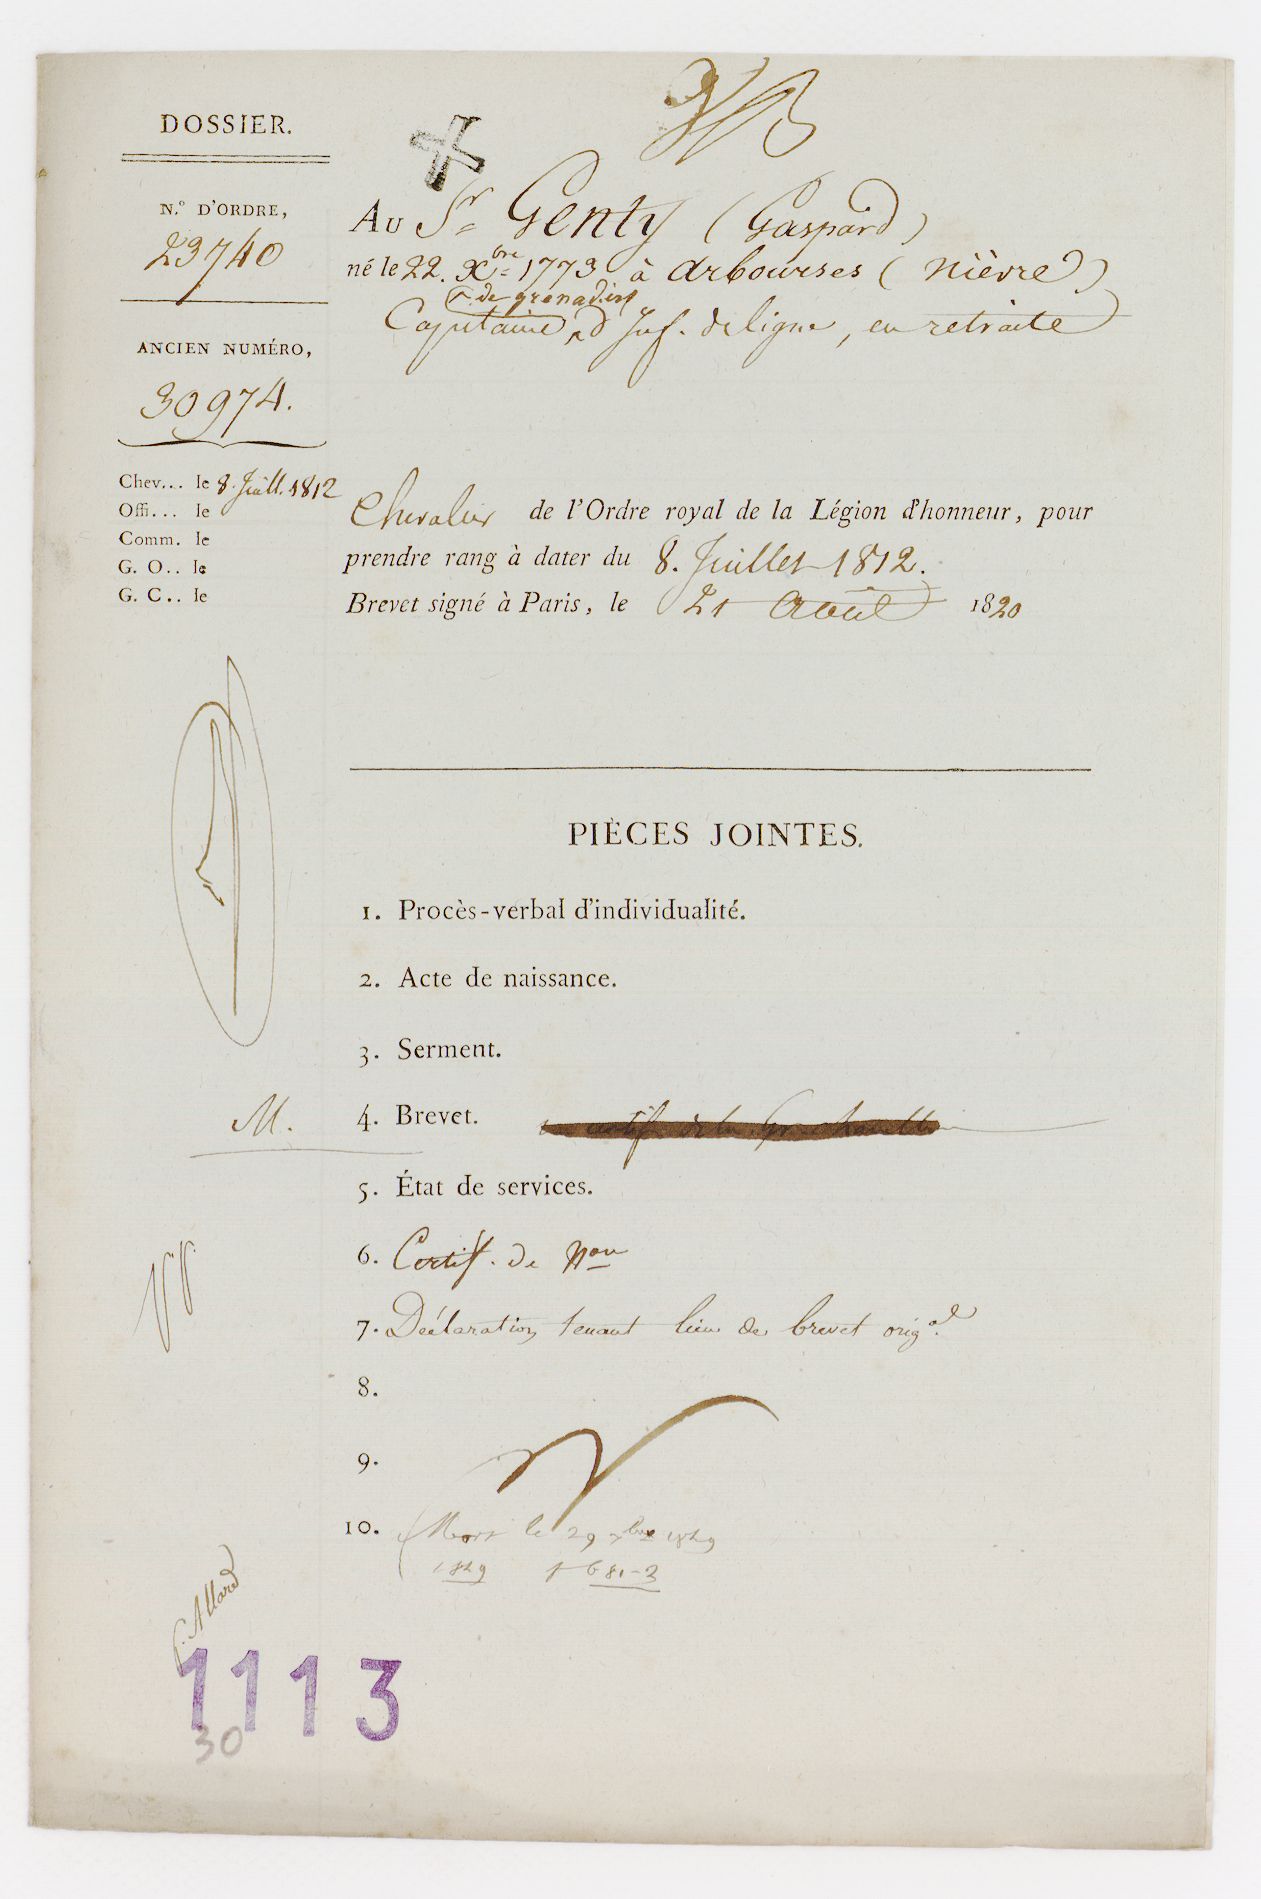 DOSSIER.
N.° D'ORDRE,
23740
ANCIEN NUMÉRO,
30974.
Chev... le 8. Juill. 1812
Offi... le
Comm. le
G. O.. le
G. C.. le
AU Sr Genty (Gaspard)
né le 22. Xbre 1773 à arbourses (nièvre)
de grenadiers
Capitaine d'Inf. de ligne, en retraite
Chevalier de l'Ordre royal de la Légion d'honneur, pour
prendre rang à dater du 8. Juillet 1812.
Brevet signé à Paris, le 21 Août 1820
PIÈCES JOINTES.
1. Procès-verbal d'individualité.
2. Acte de naissance.
3. Serment.
M.
4. Brevet.
5. État de services.
6. Certif. de Non
7. Déclaration tenant lieu de brevet orig.al
8.
9.
10. Mort le 29 xbre 1829
1829 1681-3
G. Allard
1113
30